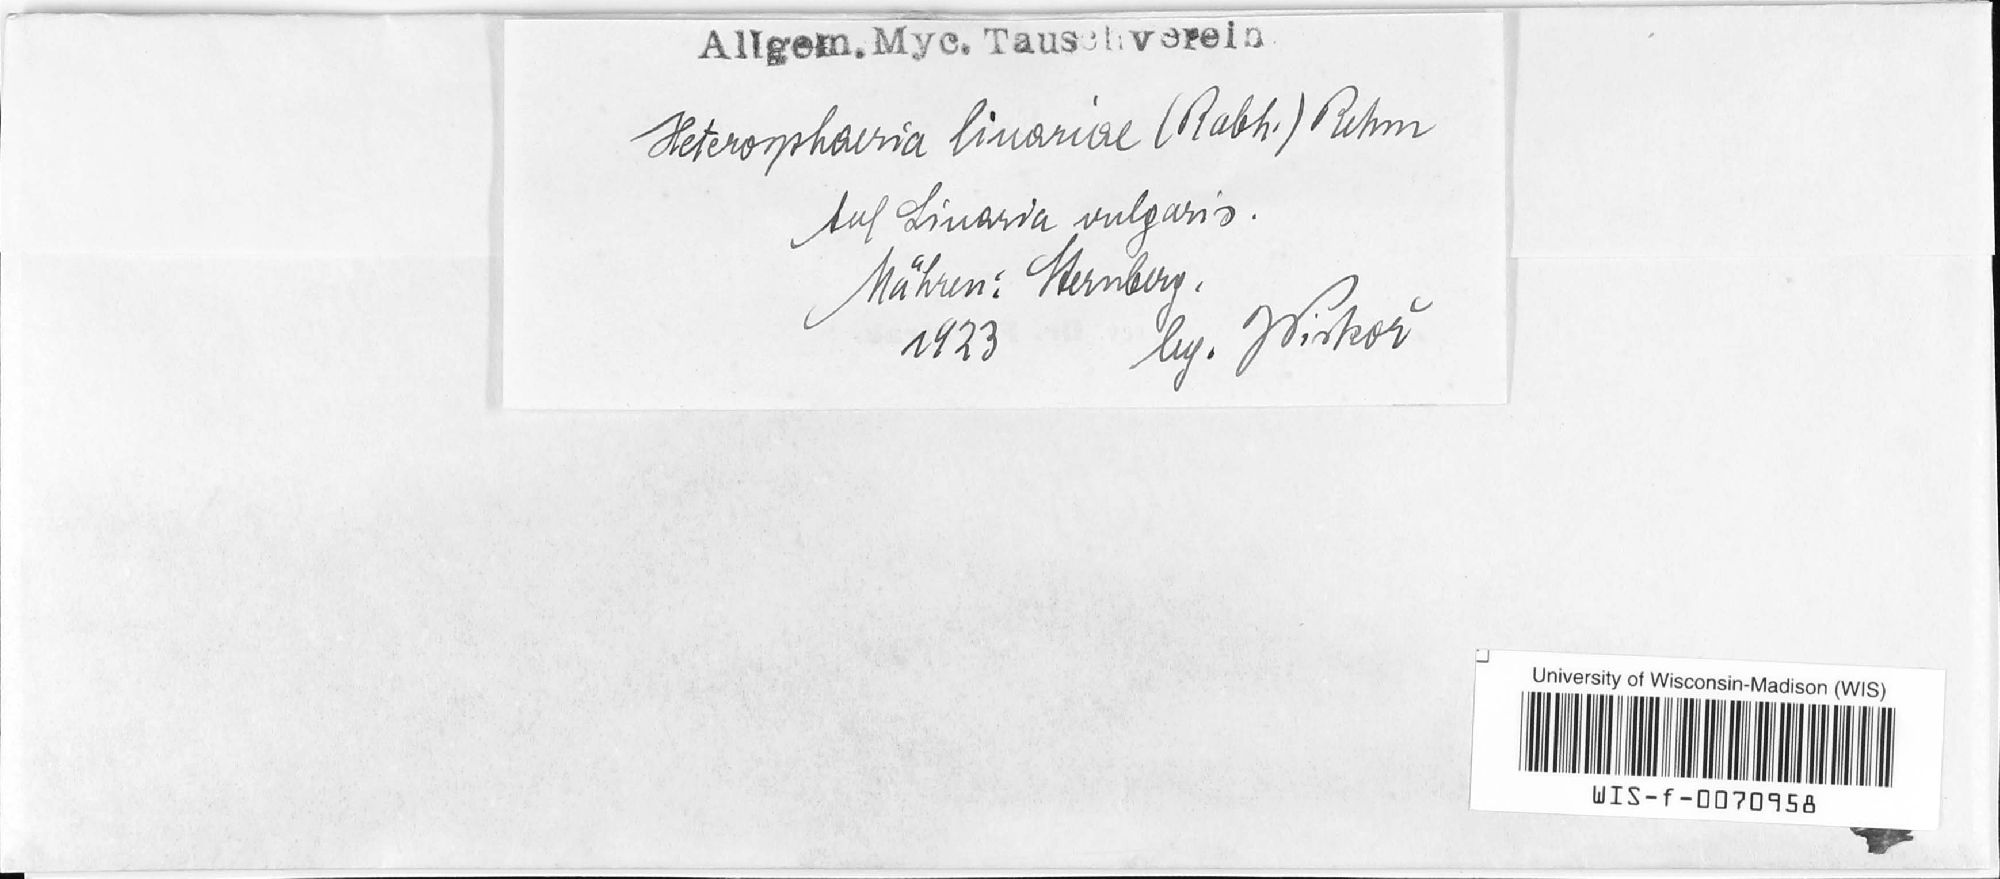 Allgem. Myc. Tauschverein
Heterosphaeria linariae (Rabh.) Rehm
Auf Linaria vulgaris.
Mähren: Sternberg.
1923 leg. Piskoř
University of Wisconsin-Madison (WIS)
WIS-f-0070958